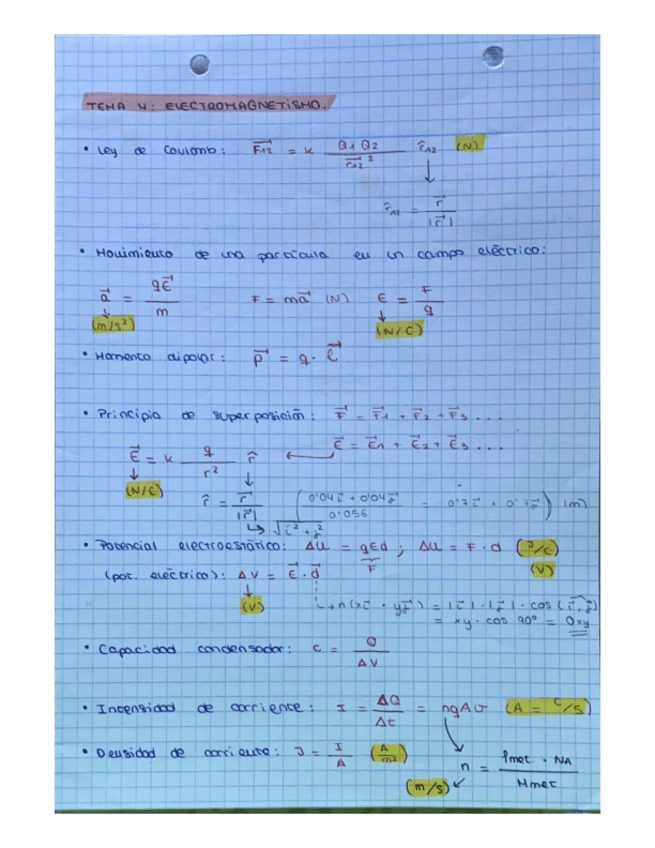 TEMA 4: ELECTROMAGNETISMO.
• Ley de Coulomb: F₁₂ = k Q₁ Q₂ / r₁₂² r̂₁₂ (N)
r̂₁₂ = r⃗ / |r⃗|
• Movimiento de una partícula en un campo eléctrico:
a⃗ = qE⃗ / m F = ma⃗ (N) E = F / q
(m/s²) (N/C)
• Momento dipolar: p⃗ = q · l⃗
• Principio de superposición: F⃗ = F⃗₁ + F⃗₂ + F⃗₃ ...
E⃗ = k q / r² r̂ ← E⃗ = E⃗₁ + E⃗₂ + E⃗₃ ...
(N/C) r̂ = r⃗ / |r⃗| (0'04i⃗ + 0'04j⃗ / 0'056 = 0'7i⃗ + 0'7j⃗) (m)
↳ √i² + j²
• Potencial electroestático: ΔU = qEd ; ΔU = F · d (J/C)
F (V)
(pot. eléctrico): ΔV = E⃗ · d⃗
(V) ↳ n(xi⃗ · yj⃗) = |i⃗| · |j⃗| · cos (i⃗, j⃗)
= xy · cos 90º = 0xy
• Capacidad condensador: C = Q / ΔV
• Intensidad de corriente: I = ΔQ / Δt = nqAv (A = C/s)
• Densidad de corriente: J = I / A (A/m²)
n = ρmet · NA / Mmet
(m/s)